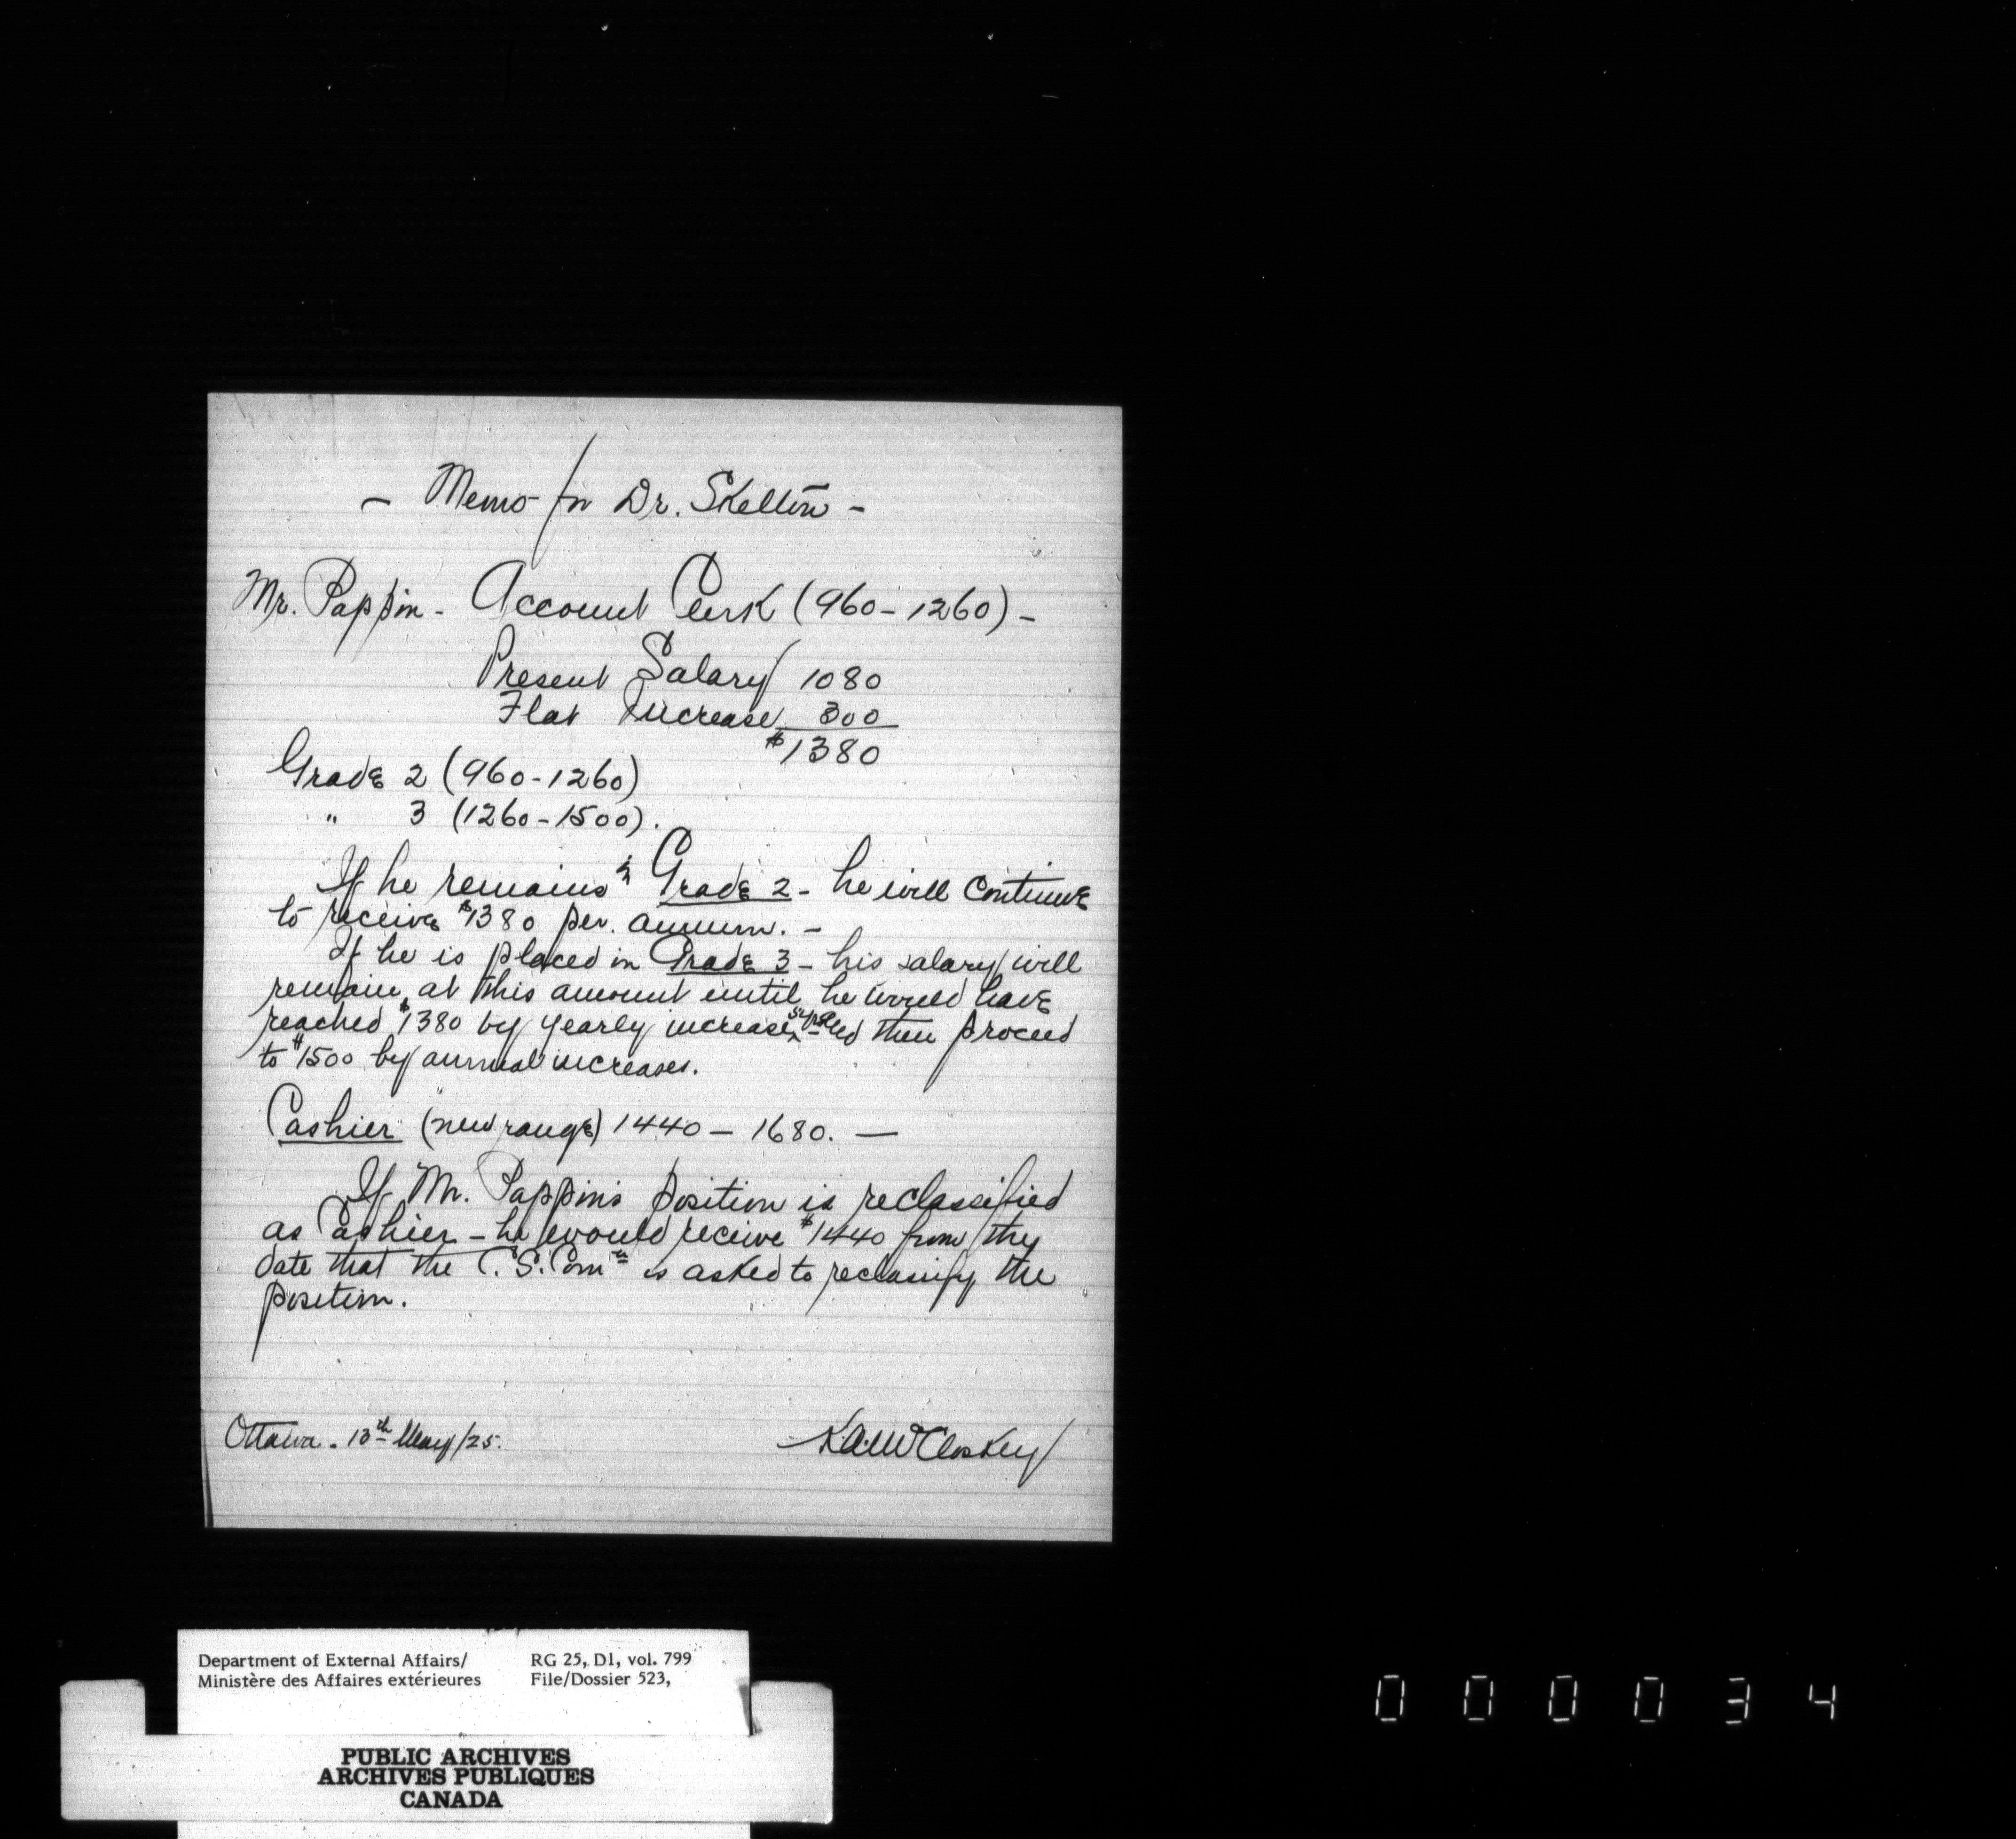 - Memo for Dr. Skelton -
Mr. Pappin - Account Clerk (960 - 1260) -
Present Salary 1080
Flat Increase 300
$1380
Grade 2 (960 - 1260)
" 3 (1260 - 1500).
If he remains in Grade 2 - he will continue
to receive $1380 per. annum. -
If he is placed in Grade 3 - his salary will
remain at this amount until he would have
reached $1380 by yearly increases then proceed
to $1500 by annual increases.
Cashier (new range) 1440 - 1680. -
If Mr. Pappin's position is reclassified
as Cashier - he would receive $1440 from the
date that the C.S. Comn is asked to reclassify the
position.
Ottawa. 13th May/25.
K.A. McCloskey
Department of External Affairs/ RG 25, D1, vol. 799
Ministère des Affaires extérieures File/Dossier 523,
PUBLIC ARCHIVES
ARCHIVES PUBLIQUES
CANADA
000034